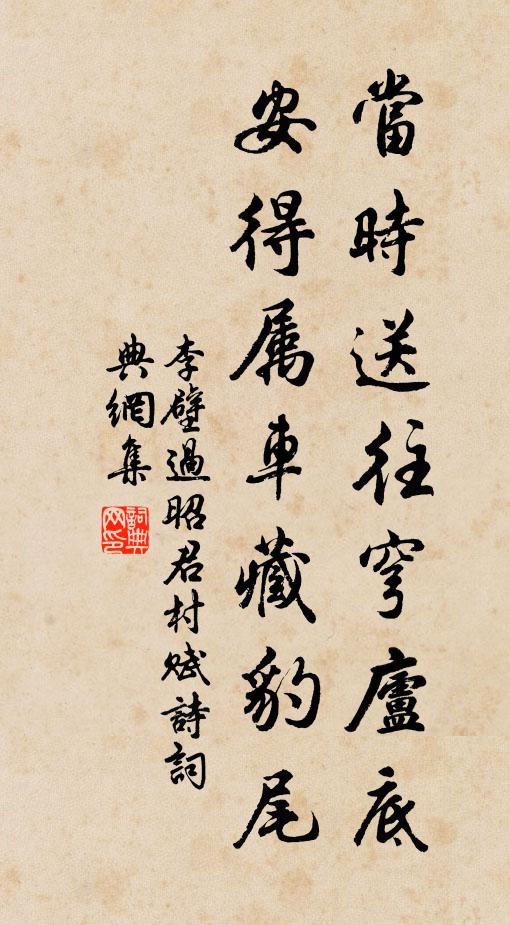 當時送往穹廬底
安得属車藏豹尾
李壁過昭君村賦詩詞
典網集
詞典網印